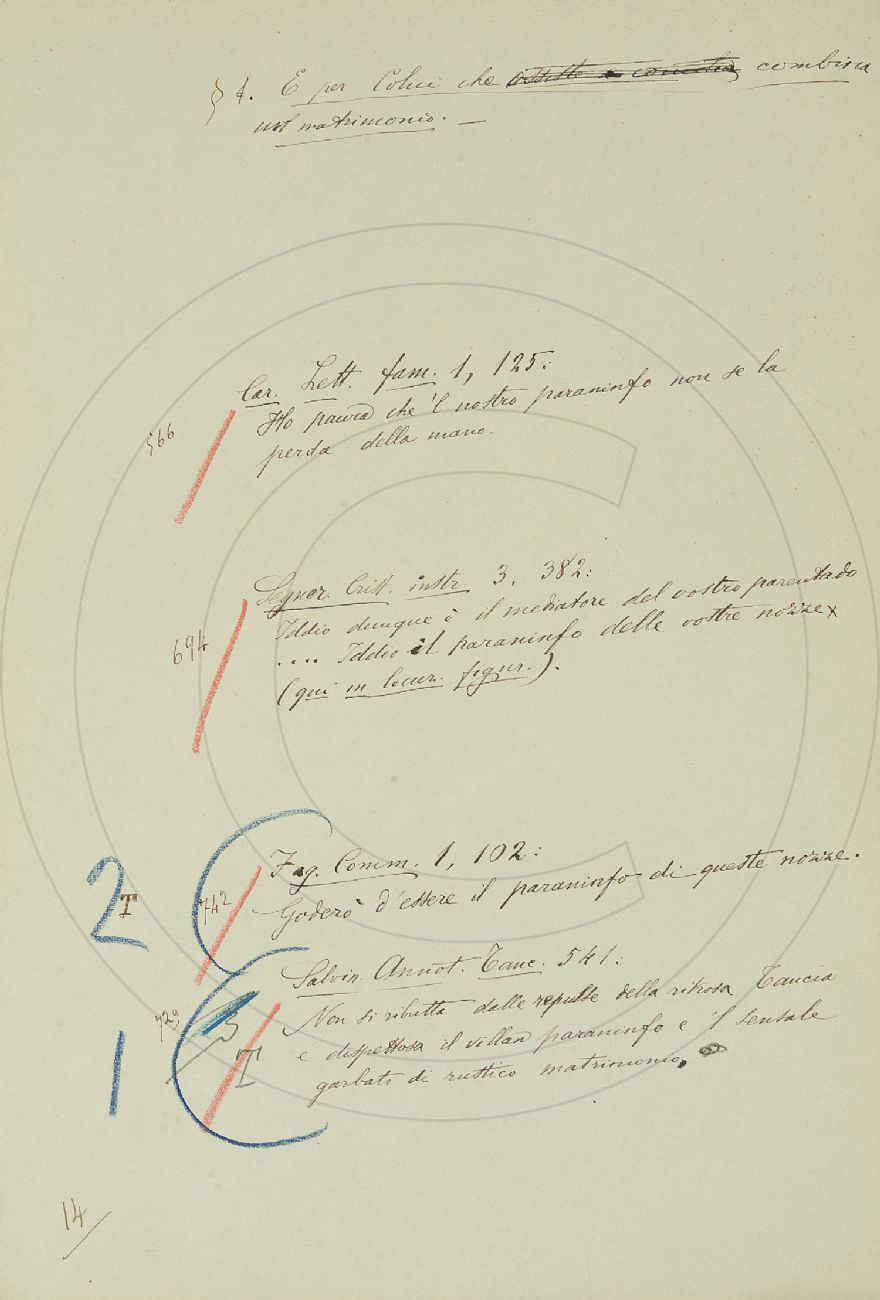 § 4. E per Colui che combina
un matrimonio. —
Car. Lett. fam. 1, 125:
566
Ho paura che 'l nostro paraninfo non se la
perda della mano.
Segner. Crist. instr. 3. 382:
694
Iddio dunque è il mediatore del vostro parentado
.... Iddio il paraninfo delle vostre nozze
(qui in locuz. figur.).
2 T
Fag. Comm. 1, 102:
742
Goderò d'essere il paraninfo di queste nozze.
Salvin. Annot. Tanc. 541:
729
Non si ributta dalle repulse della ritrosa Tancia
e dispettosa il villan paraninfo e 'l sensale
garbato di rustico matrimonio.
1
3
T
14